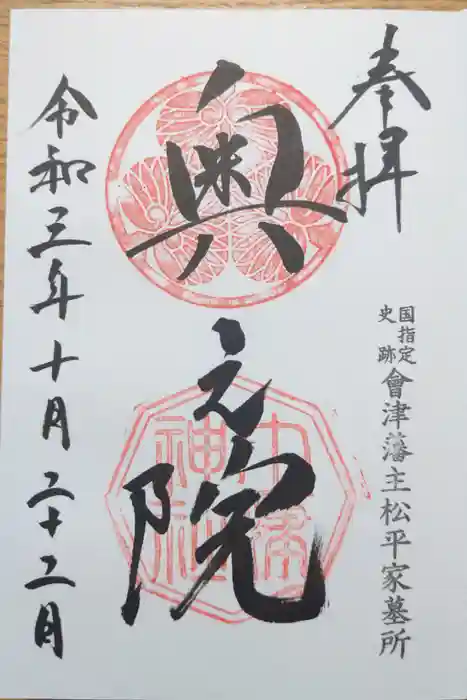 奉拝
国指定
史跡
會津藩主松平家墓所
奥之院
土津
神社
令和三年十月二十二日